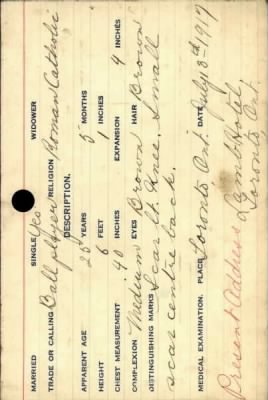 MARRIED SINGLE Yes WIDOWER
TRADE OR CALLING Ball player RELIGION Roman Catholic
DESCRIPTION.
APPARENT AGE 25 YEARS 5 MONTHS
HEIGHT 6 FEET 1 INCHES
CHEST MEASUREMENT 40 INCHES EXPANSION 4 INCHES
COMPLEXION Medium EYES Brown HAIR Brown
DISTINGUISHING MARKS Scar lt. Knee. Small
scar centre back.
MEDICAL EXAMINATION. PLACE Toronto Ont. DATE July 3rd 1917
Present Address Hotel
Toronto Ont.